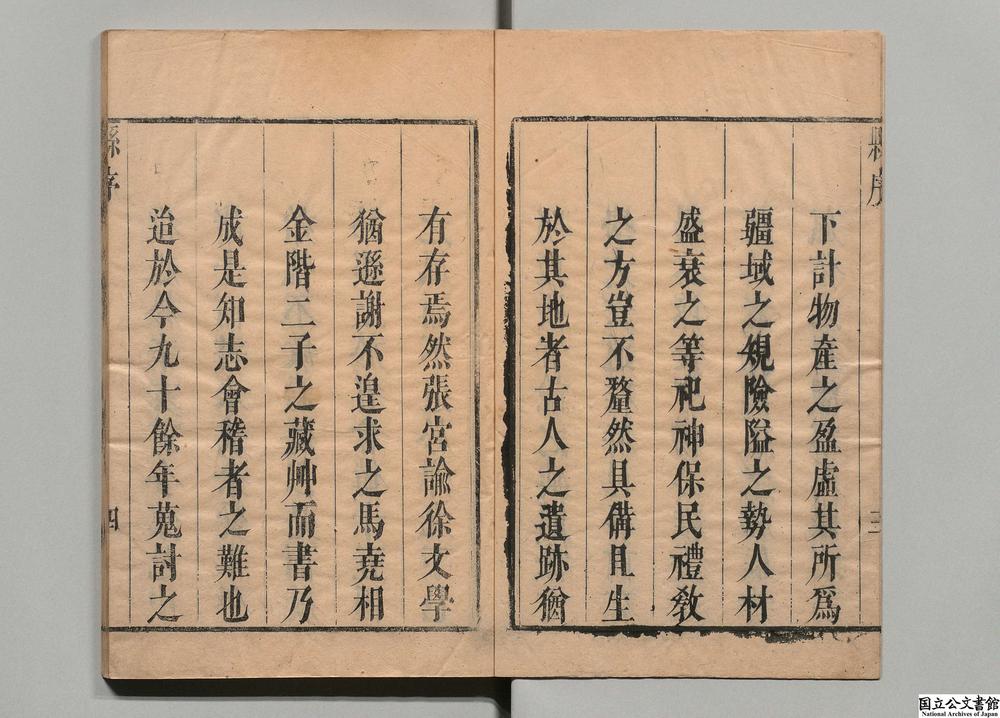 縣序
三
下計物產之盈虛其所爲
疆域之規險隘之勢人材
盛衰之等祀神保民禮敎
之方豈不釐然具備且生
於其地者古人之遺跡猶
有存焉然張宮諭徐文學
猶遜謝不遑求之馬堯相
金階二子之藏艸而書乃
成是知志會稽者之難也
迨於今九十餘年蒐討之
縣序
四
国立公文書館
National Archives of Japan